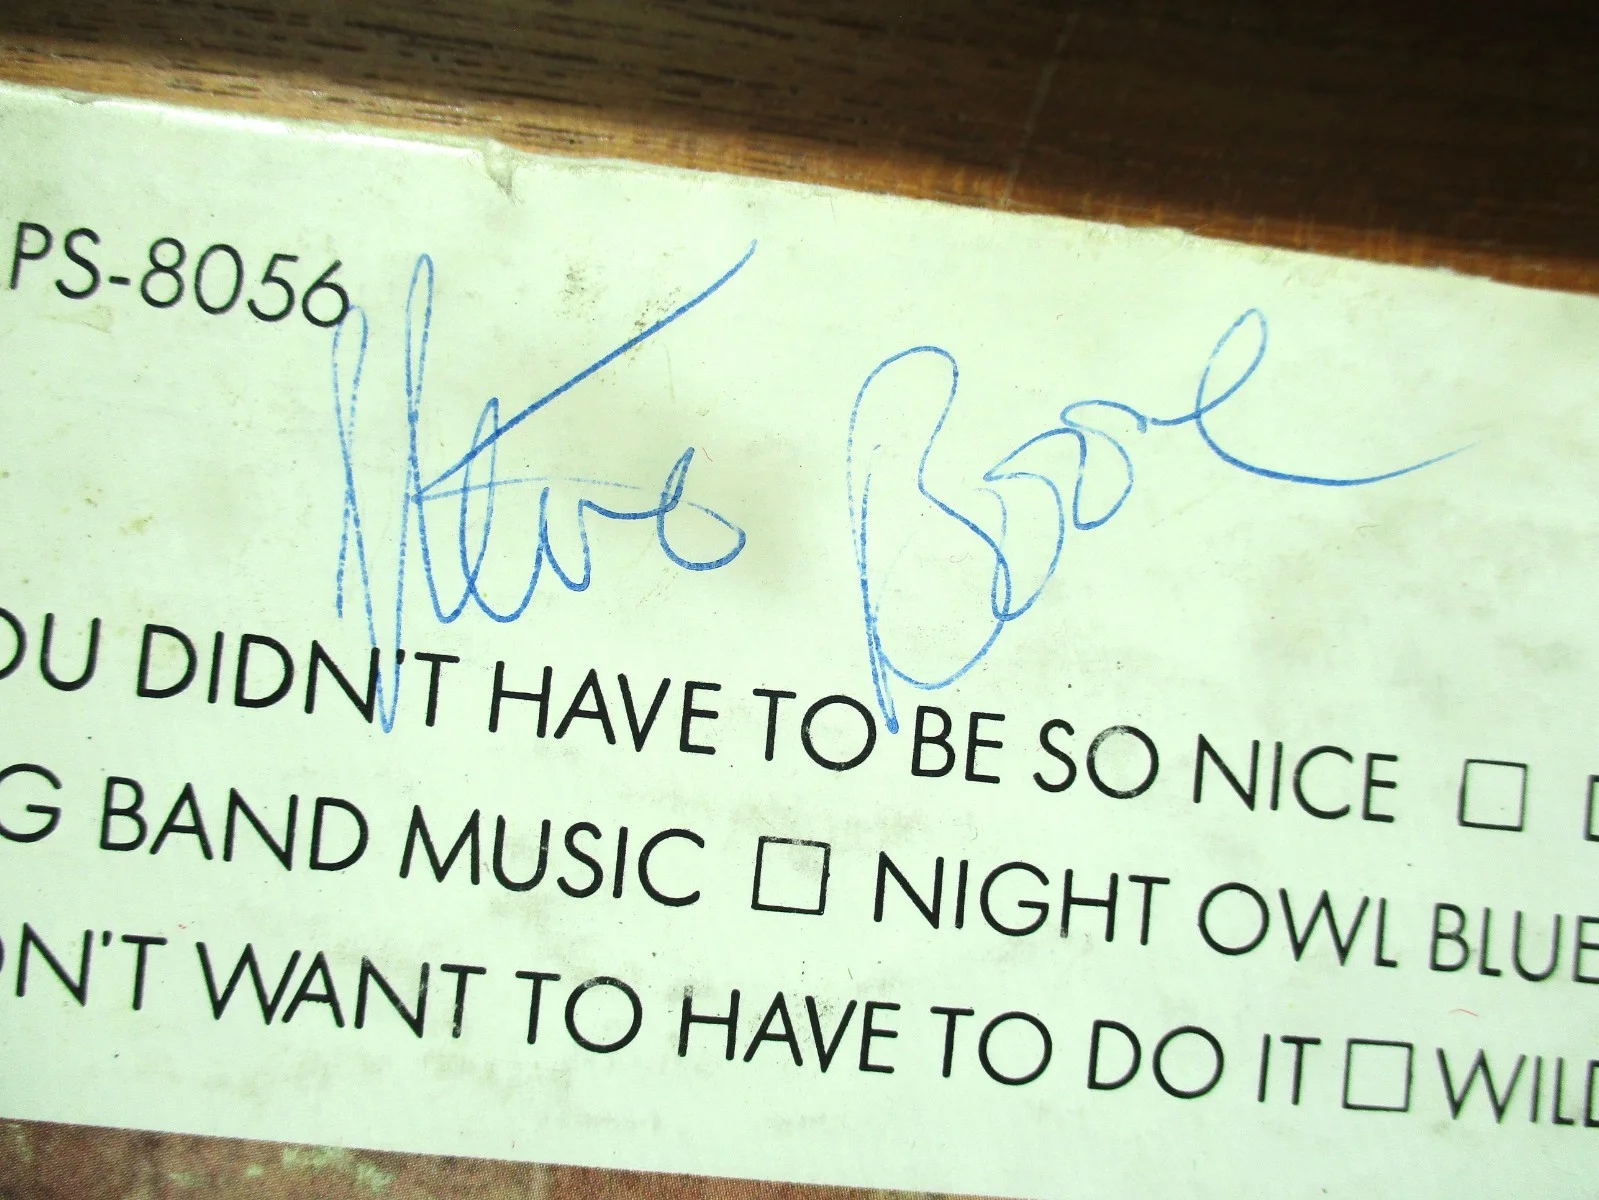 PS-8056
Steve Boone
OU DIDN'T HAVE TO BE SO NICE □
G BAND MUSIC □ NIGHT OWL BLUE
ON'T WANT TO HAVE TO DO IT □ WILD